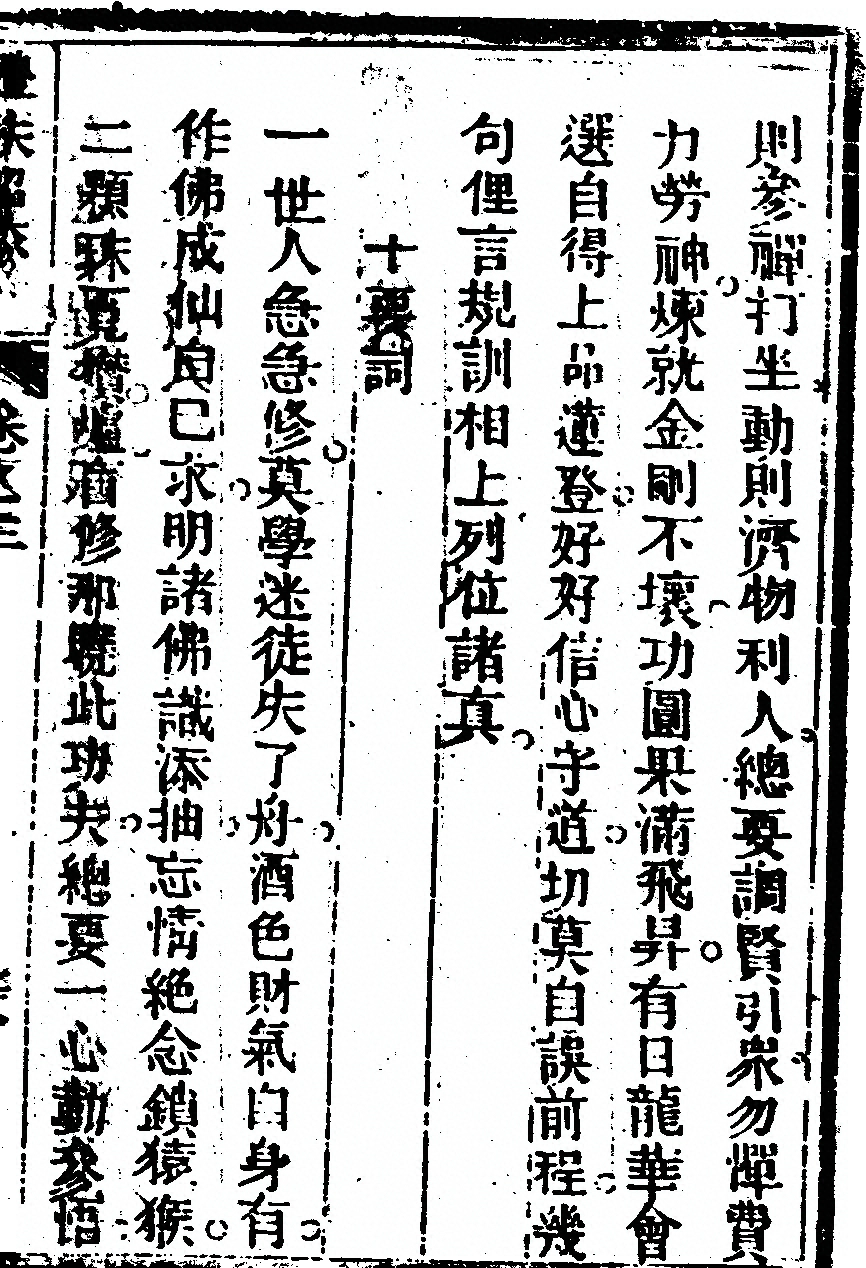 則參禪打坐動則濟物利人總要調賢引衆勿憚費
力勞神煉就金剛不壞功圓果滿飛昇有日龍華會
選自得上品蓮登好好信心守道切莫自誤前程幾
句俚言規訓相上列位諸真
十要詞
一世人急急修莫學迷徒失了舟酒色財氣自身有
作佛成仙良已求明諸佛識添抽忘情絕念鎖猿猴
二顆珠覓攢爐看修那曉此功夫總要一心勤參悟
卷之三